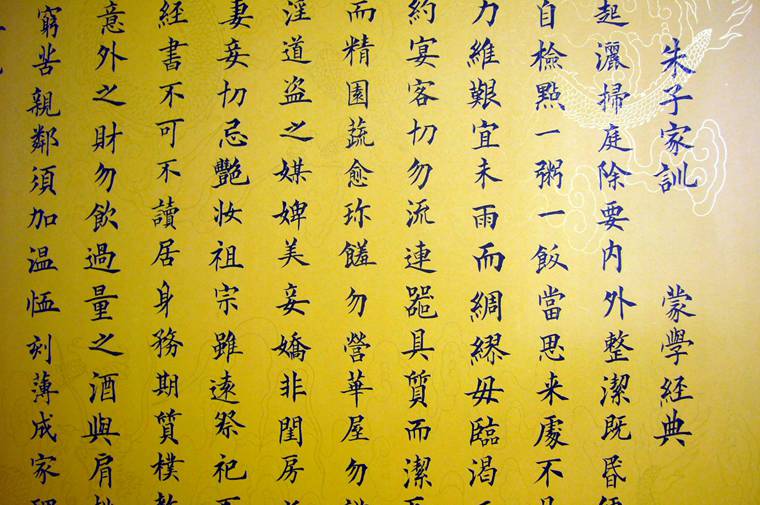 朱子家訓 蒙學經典
起灑掃庭除要内外整潔既昏便
自檢點一粥一飯當思来處不
力維艱宜未雨而綢繆毋臨渴
約宴客切勿流連器具質而潔
而精園蔬愈珎饈勿營華屋勿
淫道盗之媒婢美妾嬌非閨房
妻妾切忌艷妆祖宗雖逺祭祀
經書不可不讀居身務期質樸
意外之財勿飲過量之酒與肩
窮苦親鄰須加温恤刻薄成家